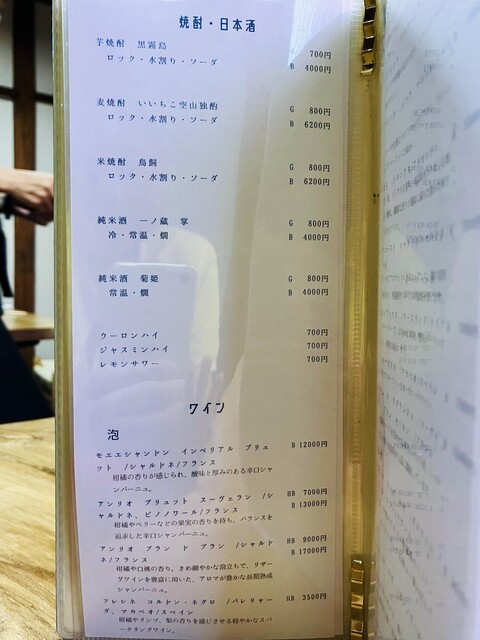 焼酎・日本酒
芋焼酎 黒霧島 G 700円
ロック・水割り・ソーダ B 4000円
麦焼酎 いいちこ空山独酌 G 800円
ロック・水割り・ソーダ B 6200円
米焼酎 鳥飼 G 800円
ロック・水割り・ソーダ B 6200円
純米酒 一ノ蔵 掌 G 800円
冷・常温・燗 B 4000円
純米酒 菊姫 G 800円
常温・燗 B 4000円
ウーロンハイ 700円
ジャスミンハイ 700円
レモンサワー 700円
ワイン
泡
モエエシャンドン インペリアル ブリュ B 12000円
ット /シャルドネ/フランス
柑橘の香りが感じられ、酸味と厚みのある辛口シャ
ンパーニュ。
アンリオ ブリュット スーヴェラン /シ HB 7000円
ャルドネ、ピノノワール/フランス B 13000円
柑橘やベリーなどの果実の香りを持ち、バランスを
追求した辛口シャンパーニュ。
アンリオ ブラン ド ブラン /シャルド HB 9000円
ネ/フランス B 17000円
柑橘や白桃の香り。きめ細やかな泡立ちで、リザー
グワインを豊富に用いた、アロマが豊かな長期熟成
シャンパーニュ。
フレシネ コルドン・ネグロ /パレリャー HB 3500円
ダ、マカベオ/スペイン
柑橘やリンゴ、梨の香りを感じさせる軽やかなスパ
ークリングワイン。